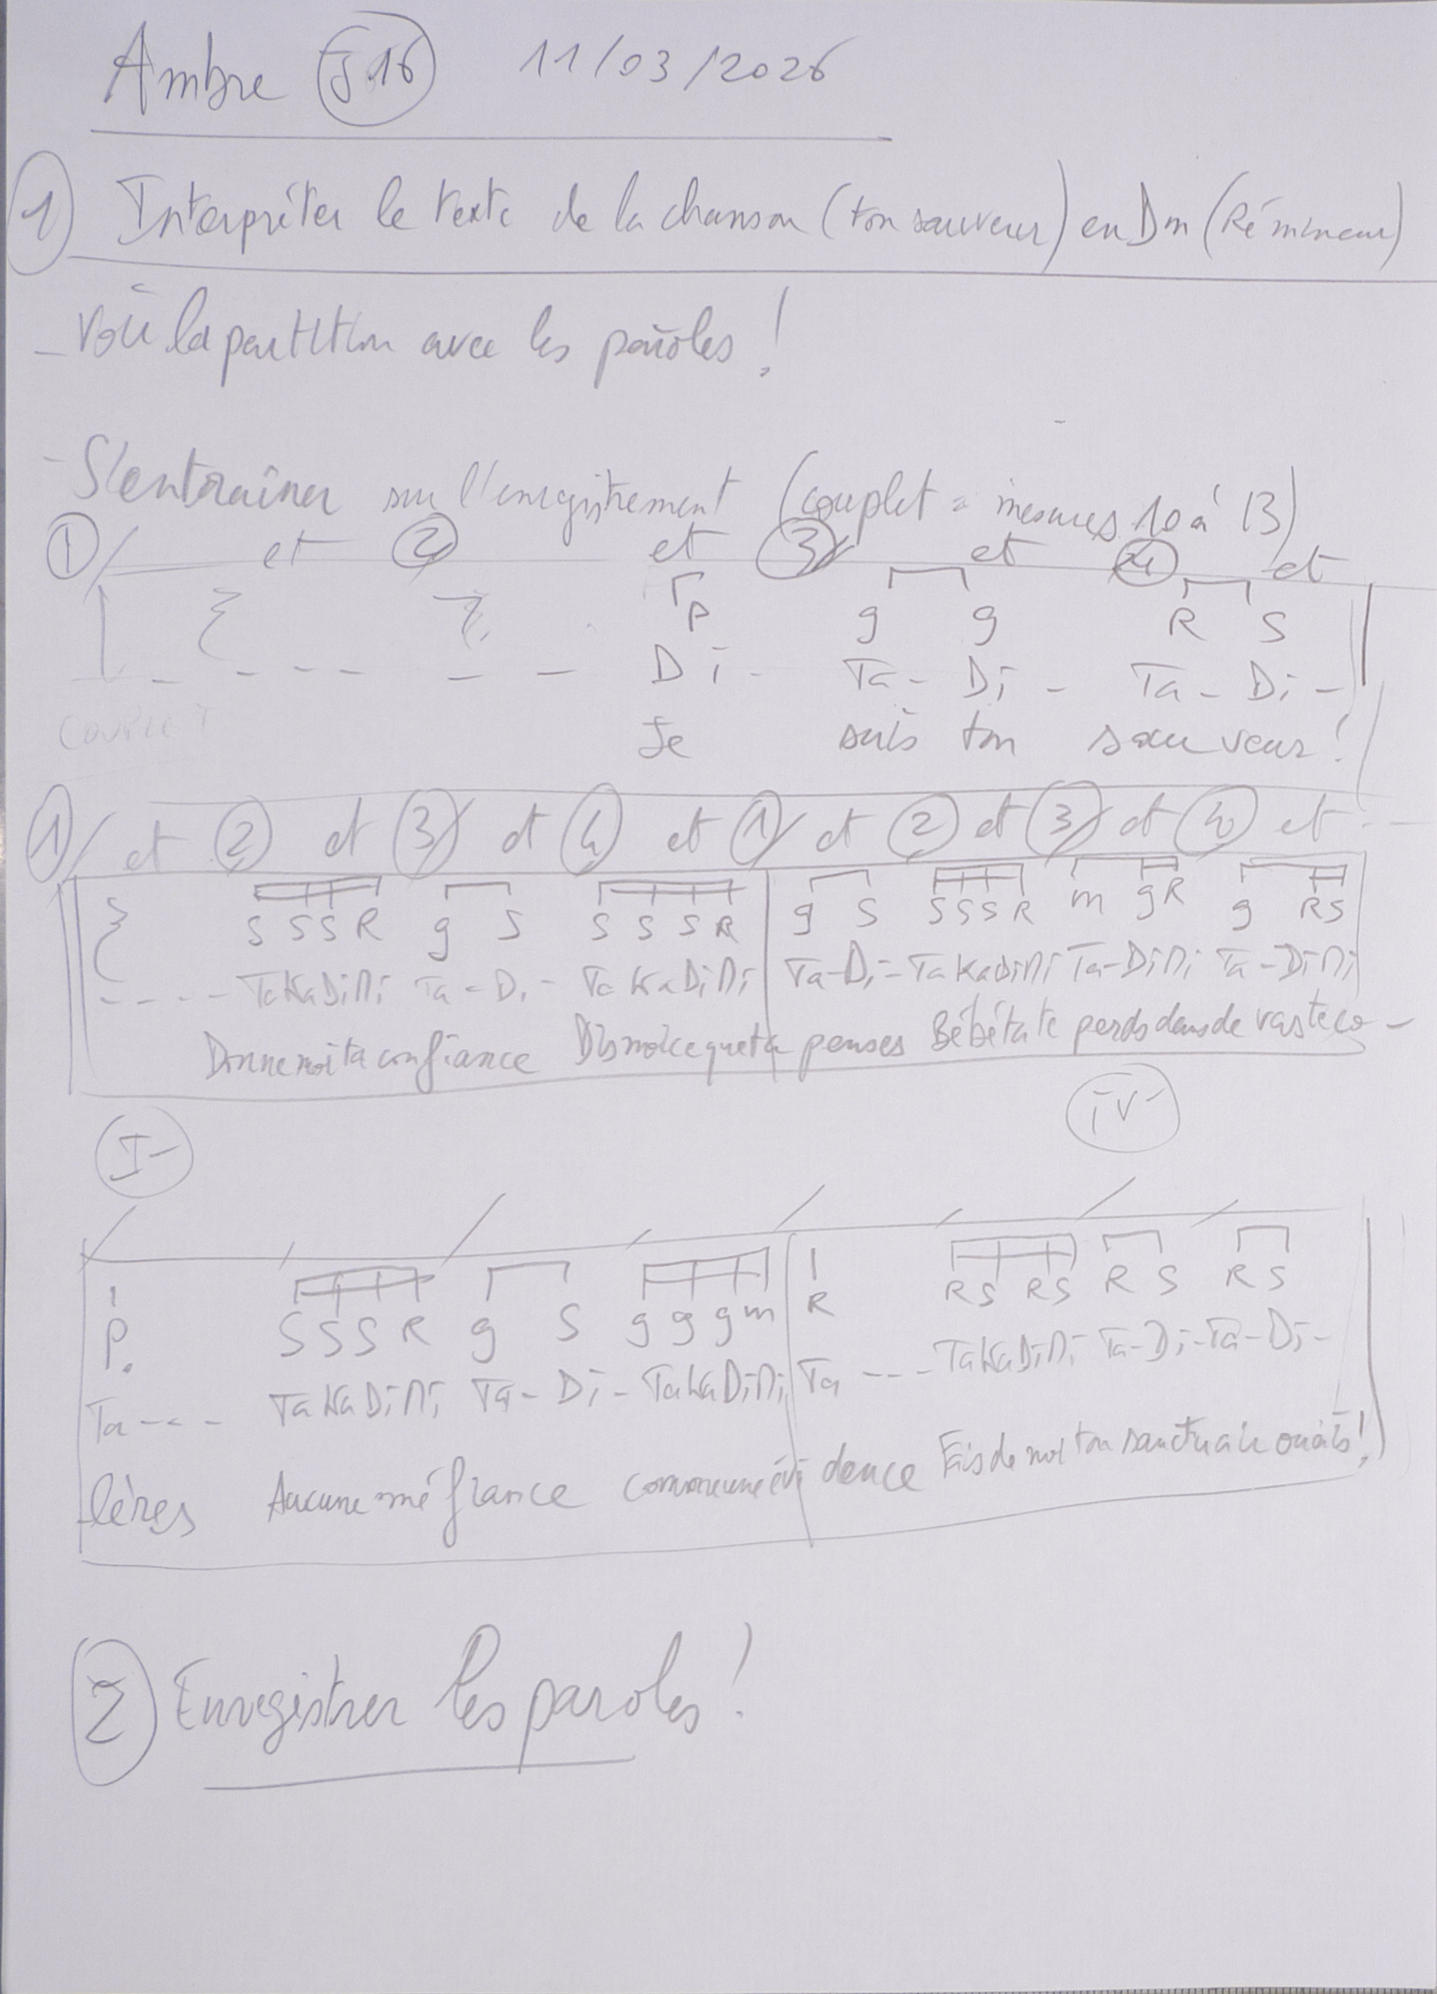 Ambre J.16 11/03/2026
1 Interpréter le texte de la chanson (ton sauveur) en Dm (Ré mineur)
- Voir la partition avec les paroles !
- S'entraîner sur l'enregistrement (couplet = mesures 10 à 13)
1 et 2 et 3 et 4 et
P g g R S
- - - - - - Di - Ta - Di - Ta - Di -
Couplet Je suis ton sauveur !
1 et 2 et 3 et 4 et 1 et 2 et 3 et 4 et
S S S R g S S S S R g S S S S R m g R g R S
- - - - TaKaDiMi Ta - Di - TaKaDiMi Ta - Di - TaKaDiMi Ta - DiMi Ta - DiMi
Donne moi ta confiance Dis moi ce que tu penses Bébé tu te perds dans de vastes co -
I- IV-
P. S S S R g S g g g m R R S R S R S R S
Ta - - - TaKaDiMi Ta - Di - TaKaDiMi Ta - - - TaKaDiMi Ta - Di - Ta - Di -
lères Aucune méfiance comme une évidence Fais de moi ton sanctuaire ouais !
2 Enregistrer les paroles !